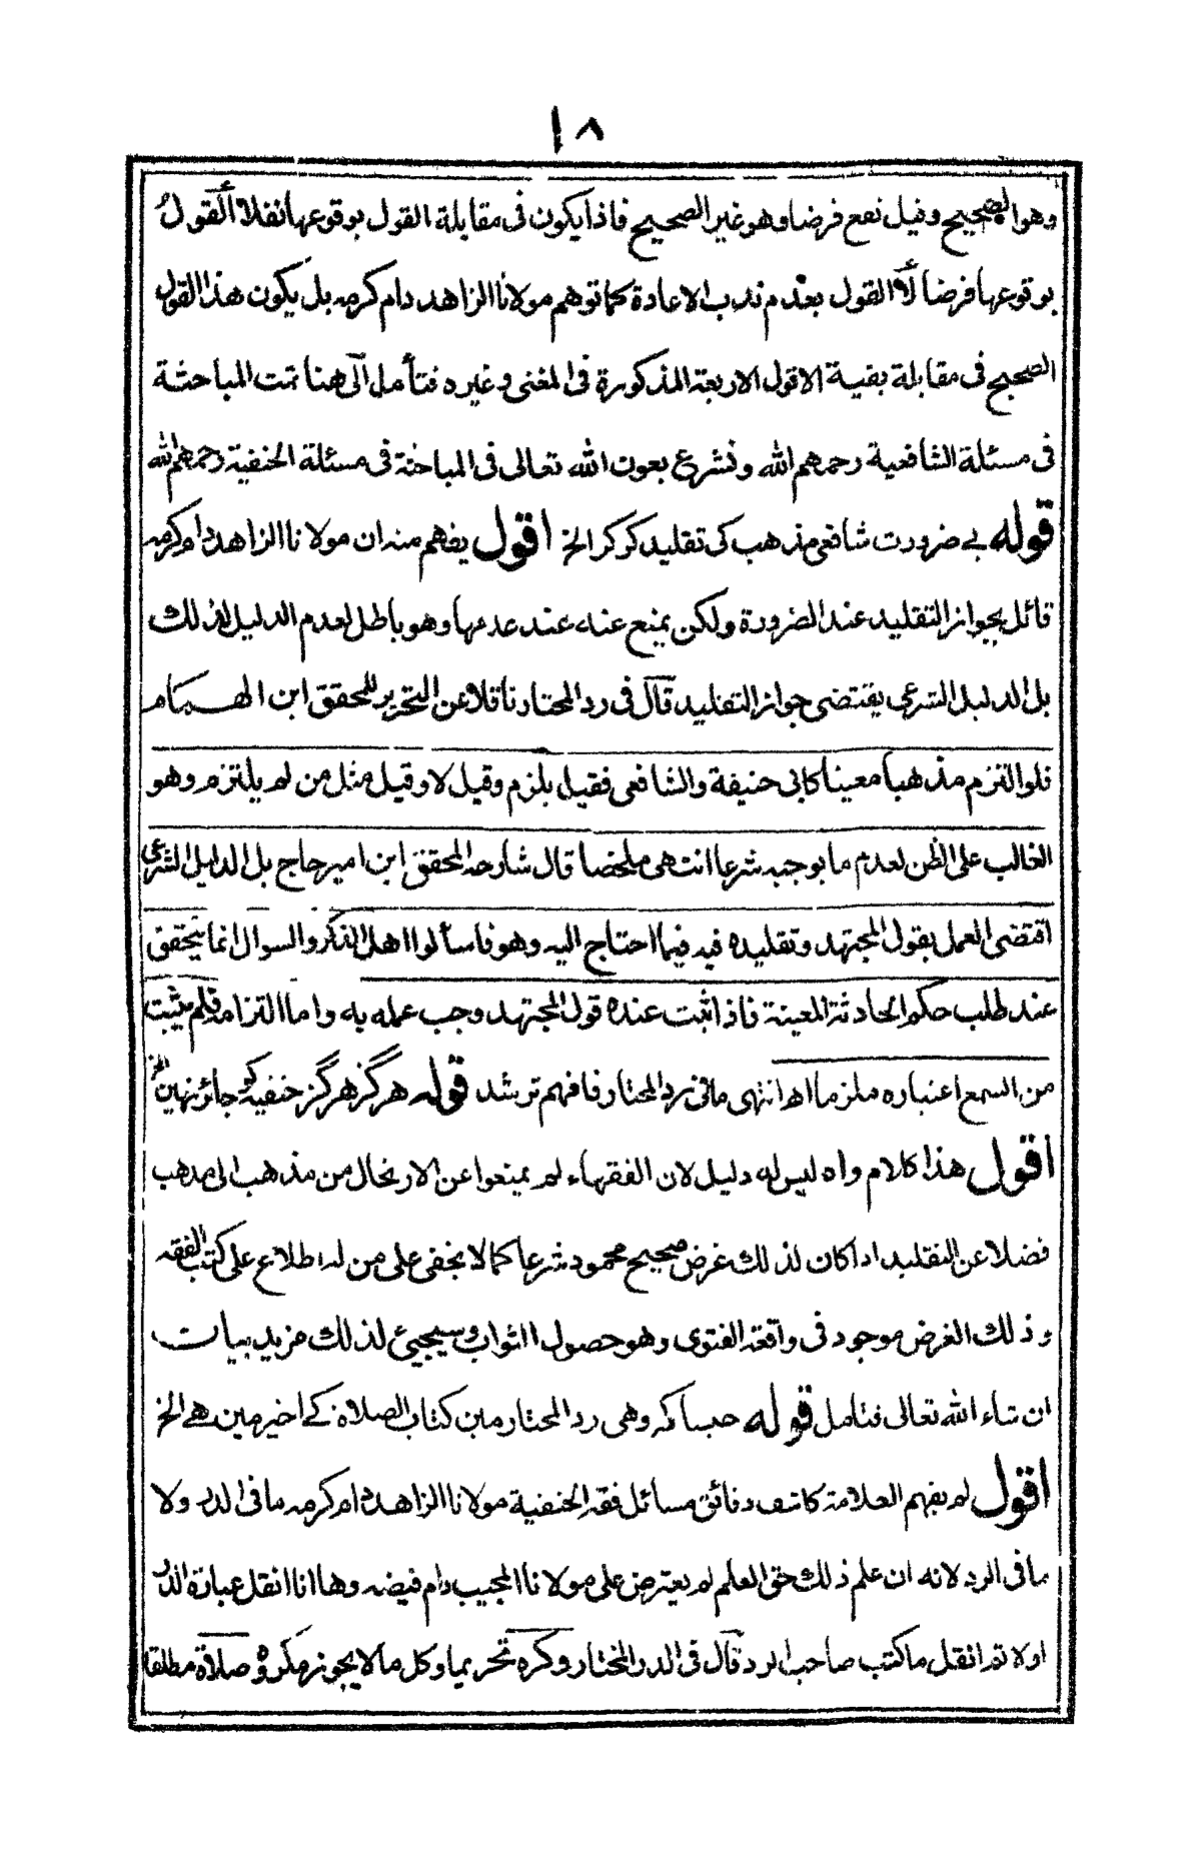 ١٨
وهو الصحيح وقيل نفع فرضا وهو غير الصحيح فاذا يكون فى مقابلة القول بوقوعها نفلا القول
بوقوعها فرضا لا القول بعدم ندب الاعادة كما توهم مولانا الزاهد دام كرمه بل يكون هذا القول
الصحيح فى مقابلة بقية الاقول الاربعة المذكورة فى المغنى وغيره فتأمل الى هنا تمت المباحثة
فى مسئلة الشافعية رحمهم الله ونشرع بعون الله تعالى فى المباحثة فى مسئلة الحنفية رحمهم الله
قوله بے ضرورت شافعى مذهب كى تقليد كركر الخ اقول يفهم منه ان مولانا الزاهد دام كرمه
قائل بجواز التقليد عند الضرورة ولكن يمنع عنه عند عدمها وهو باطل لعدم الدليل لذلك
بل الدليل الشرعى يقتضى جواز التقليد قال فى رد المحتار ناقلا عن التحرير للمحقق ابن الهمام
فلو التزم مذهبا معينا كابى حنيفة والشافعى فقيل يلزم وقيل لا وقيل مثل من لم يلتزم وهو
الغالب على الظن لعدم ما يوجبه شرعا انتهى ملخصا قال شارحه المحقق ابن امير حاج بل الدليل الشرعى
اقتضى العمل بقول المجتهد وتقليده فيه فيما احتاج اليه وهو فاسألوا اهل الذكر والسوال انما يتحقق
عند طلب حكم الحادثة المعينة فاذا ثبت عنده قول المجتهد وجب عمله به واما التزامه فلم يثبت
من السمع اعتباره ملزما اه انتهى ما فى رد المحتار فافهم ترشد قوله هرگز هرگز حنفيه كو جائز نهين الخ
اقول هذا كلام واه ليس له دليل لان الفقهاء لم يمنعوا عن الارتحال من مذهب الى مذهب
فضلا عن التقليد اذا كان لذلك غرض صحيح محمود شرعا كما لا يخفى على من له اطلاع على كتب الفقه
وذلك الغرض موجود فى واقعة الفتوى وهو حصول الثواب وسيجيئ لذلك مزيد بيان
ان شاء الله تعالى فتامل قوله جيسا كه وهى رد المحتار مين كتاب الصلاة كے اخير مين هے الخ
اقول لم يفهم العلامة كاشف دقائق مسائل فقه الحنفية مولانا الزاهد دام كرمه ما فى الدر ولا
ما فى الرد لانه ان علم ذلك حق العلم لم يعترض على مولانا المجيب دام فيضه وها انا انقل عبارة الدر
اولا ثم انقل ما كتب صاحب الرد قال فى الدر المختار وكره تحريما وكل ما لا يجوز مكروه صلاة مطلقا